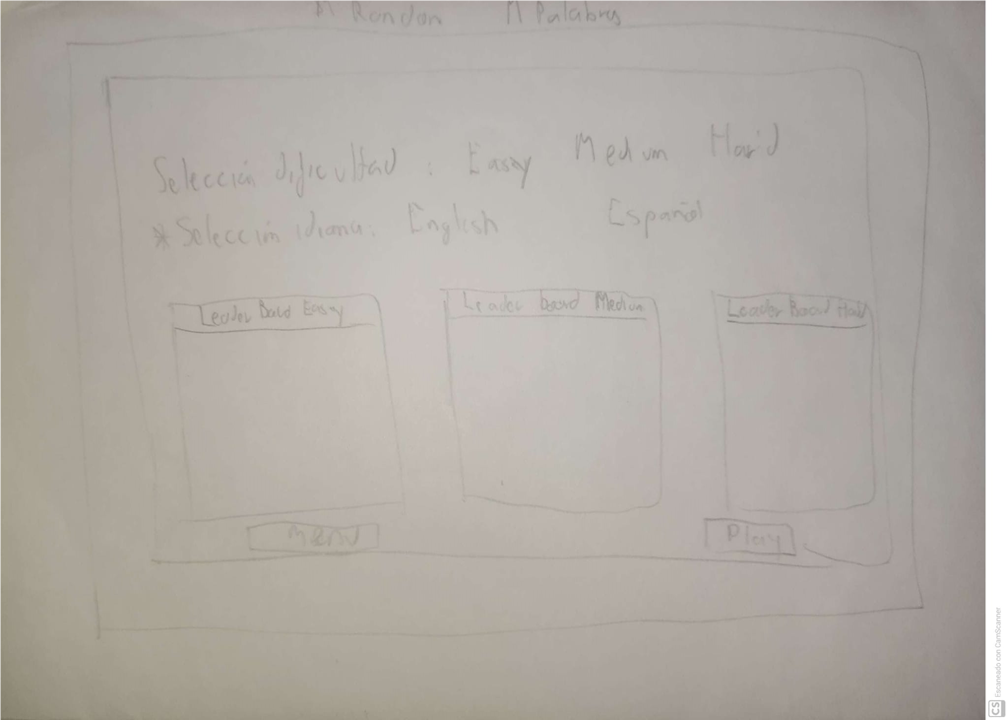 M Random M Palabras
Selección dificultad : Easy Medium Hard
* Selección idioma: English Español
Leader Board Easy
Leader board Medium
Leader Board Hard
Menu
Play
CS Escaneado con CamScanner